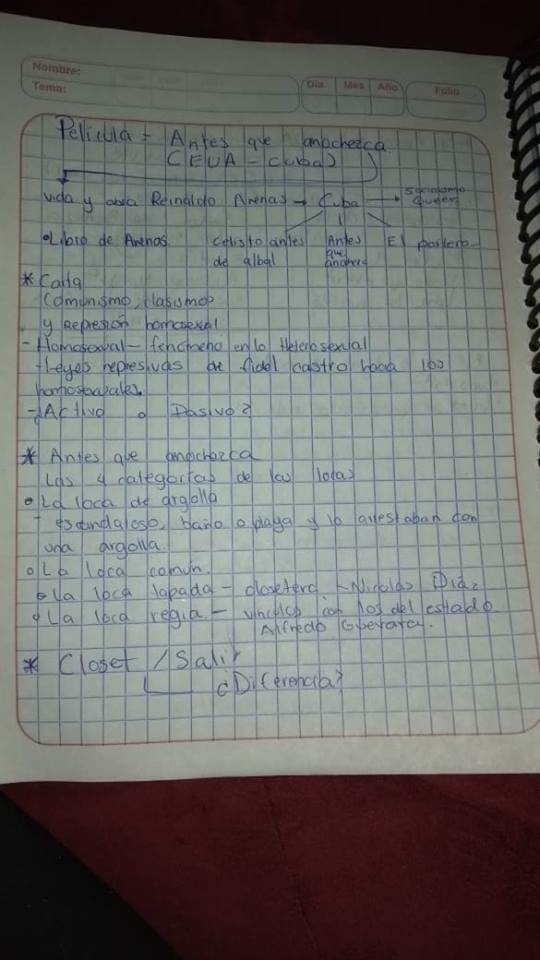 Nombre:
Tema:
Dia Mes Año
Folio
Película = Antes que anochezca
(EUA - Cuba)
Vida y obra Reinaldo Arenas → Cuba →
•Libro de Arenas Celestino antes Antes El portero
de albal que
* Carta
Comunismo, clasismo
y Represión homosexual
- Homosexual - fenómeno en lo Heterosexual
- Leyes represivas de fidel castro hacia los
homosexuales
- ¿Activo o Pasivo?
* Antes que anochezca
Las 4 categorias de las locas
• La loca de argolla
- escandaloso, baño o playa y lo arrestaban con
una argolla.
• La loca común.
• La loca tapada - closetera - Nicolas Diaz
• La loca regia - vinculos con los del estado
Alfredo Guevara.
* Closet / Salir
¿Diferencia?